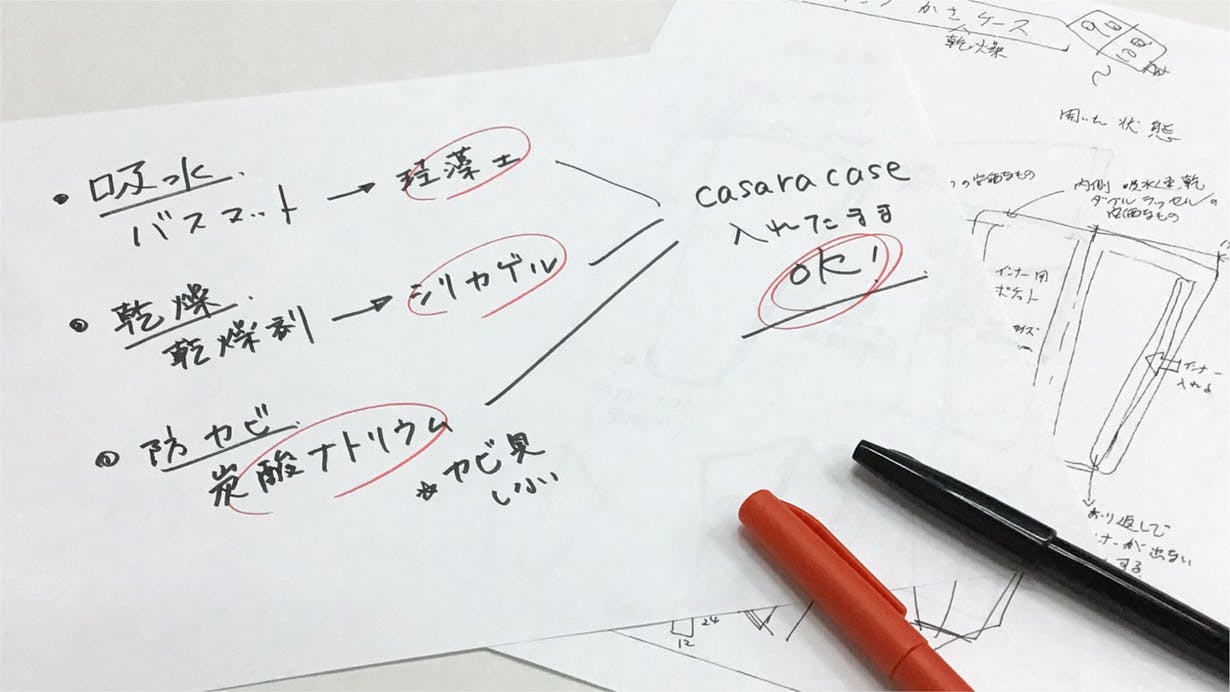 ・吸水
バスマット → 珪藻土
・乾燥
乾燥剤 → シリカゲル
・防カビ
炭酸ナトリウム
☆カビ臭
casara case
入れたまま
OK!
かさケース
乾燥
開いた状態
内側 吸水速乾
ダブルラッセルの
安価なもの
の安価なもの
インナー用
ポケット
サイズ
インナー
入れる
おり返して
ナーが出ない
する
24
12